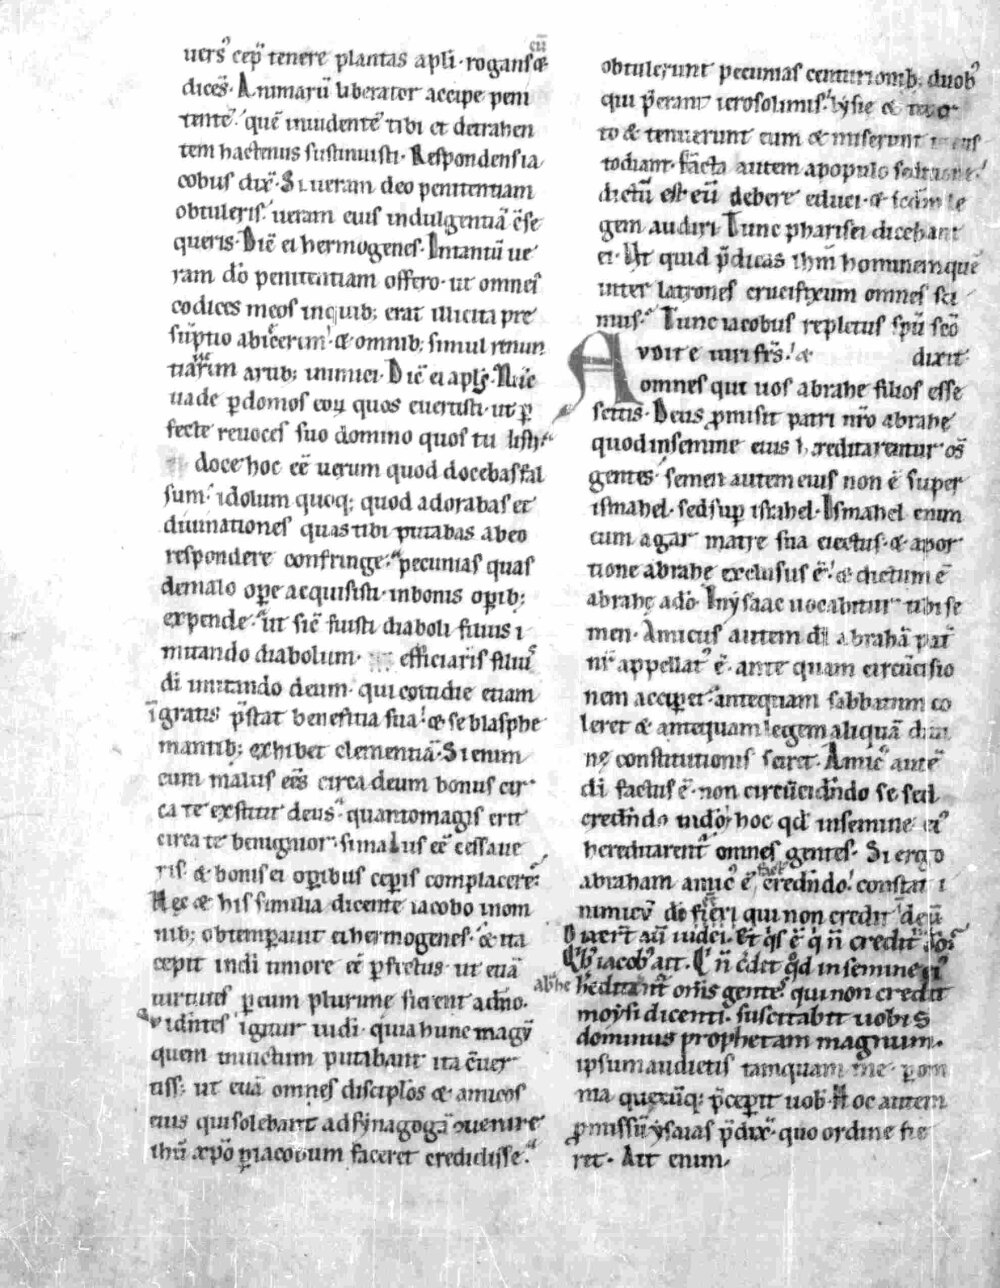 uers᾿ cep̄ tenere plantas apl̄i · rogans eū &
dicēs · Animarū liberator accipe peni
tentē · quē inuidentē tibi et detrahen
tem hactenus sustinuisti · Respondens ia
cobus dix̄ · Si ueram deo penitentiam
obtuleris · ueram eius indulgentiā c̄se
queris · Dic̄ ei hermogenes · Intantū ue
ram dō penitentiam offero · ut omnes
codices meos inquib; erat illicita pre
sūptio abiecerim · & omnib; simul renun
tiarim artib; inimici · Dic̄ ei apl̄s · Nūc
uade ꝑ domos eoꝝ quos euertisti · ut ꝑ
fecte reuoces suo domino quos tu
doce hoc eē uerum quod docebas fal
sum · idolum quoq; quod adorabas et
diuinationes quas tibi putabas ab eo
respondere confringe · pecunias quas
de malo oꝑe acquisisti · in bonis oꝑib;
expende · ut sic̄ fuisti diaboli filius i
mitando diabolum · efficiaris filiū
di imitando deum · qui cotidie etiam
īgratis p̄stat beneficia sua · & se blasphe
mantib; exhibet clementiā · Si enim
cum malus eēs circa deum bonus cir
ca te exstitit deus · quanto magis erit
circa te benignior · si malus eē cessaue
ris · & bonis ei oꝑibus ceꝑis complacere ·
Hec & his similia dicente iacobo in om
nib; obtemꝑauit ei hermogenes · & ita
cepit in di timore eē ꝑfectus · ut etiā
uirtutes ꝑ eum plurime fierent a dn̄o ·
Vidntes igitur iudi · quia hunc magū
quem inuictum putabant ita c̄uer
tiss; ut etiā omnes discipłos & amicos
eius qui solebant ad synagogā ꝯuenire
ihū xp̄o ꝑ iacobum faceret credidisse ·
obtulerunt pecunias centurionib; duob᾿
qui p̄erant ierosolimis · lysie &
to & tenuerunt eum & miserunt
todiant · facta autem a populo
dictū est eū debere educi · & scd̄m le
gem audiri · Tunc pharisei dicebant
ei · Ut quid p̄dicas ihm̄ hominem quē
inter latrones crucifixum omnes sci
mus · Tunc iacobus repletus sp̄u sc̄o
Audite uiri frs̄ · & dixit
omnes qui uos abrahe filios esse
scitis · Deus ꝓmisit patri nr̄o abrahe
quod in semine eius hereditarentur om̄s
gentes · semen autem eius non ē super
ismahel · sed suꝑ israhel · Ismahel enim
cum agar matre sua eiectus · & a por
tione abrahe exclusus ē · & dictum ē
abrahe a dō · In ysaac uocabitur tibi se
men · Amicus autem di abrahā pat̄
nr̄ appellat᾿ ē · ante quam circūcisio
nem acciꝑet · antequam sabbatum co
leret & antequam legem aliquā diui
ne constitutionis sciret · Amic᾿ autē
di factus ē · non circūcidn̄do se sed
credn̄do uidoꝝ hoc qd̄ in semine ei᾿
hereditarent᾿ omnes gentes · Si ergo
abraham amic᾿ ē fact᾿ credn̄do · constat i
nimicū di fieri qui non credit deū
Dixert̄ aū iudei · Et q̇s ē q̇ n̄ credit
Qb᾿ iacob᾿ ait · Q̇ n̄ cedit qd̄ in semine ei᾿
abrhe heditant̄ om̄s gentes · qui non credit
moysi dicenti · suscitabit uobis
dominus prophetam magnum ·
ipsum audietis tamquam me · ꝑ om
nia quecūq; p̄ceꝑit uob᾿ · Hoc autem
ꝓmissū ysaias p̄dix̄ · quo ordine fie
ret · Ait enim